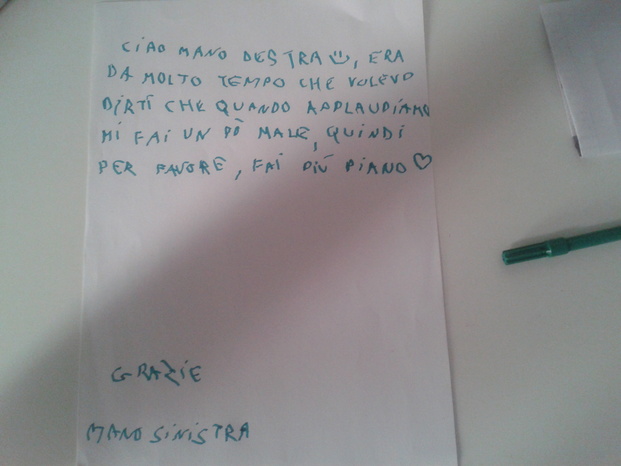 CIAO MANO DESTRA☺, ERA
DA MOLTO TEMPO CHE VOLEVO
DIRTI CHE QUANDO APPLAUDIAMO
MI FAI UN PÒ MALE, QUINDI
PER FAVORE, FAI PIÙ PIANO♡
GRAZIE
MANO SINISTRA